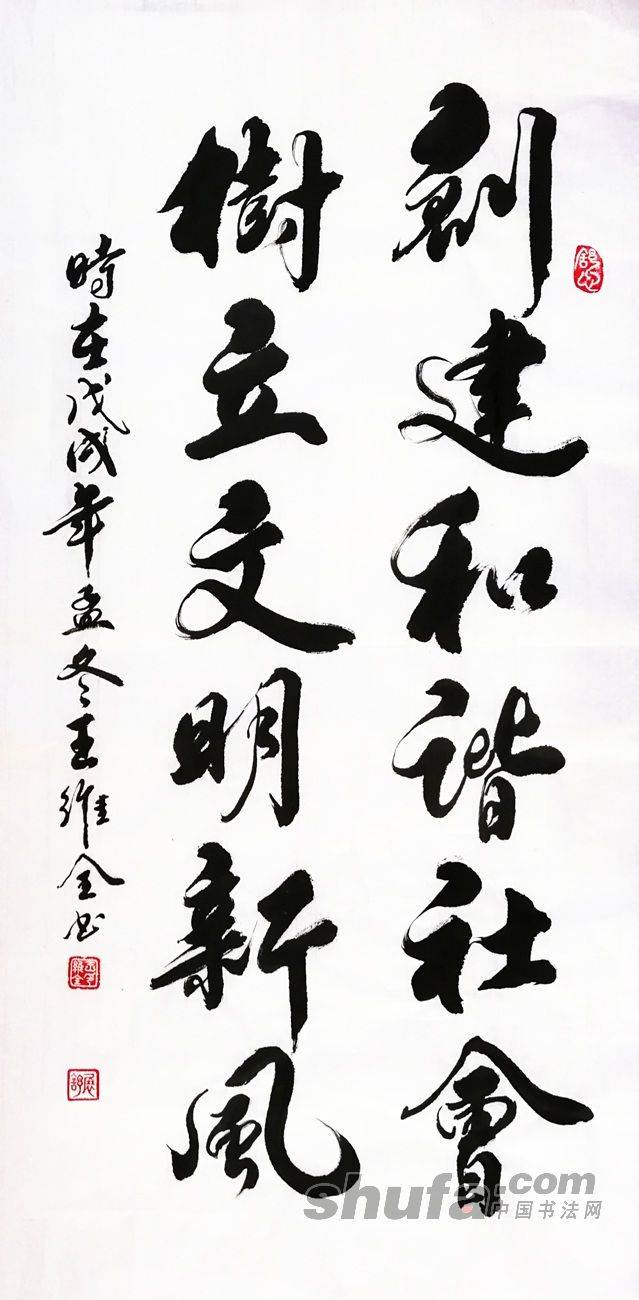 創建和諧社會
樹立文明新風
時在戊戌年孟冬王維全书
shufa.com
中国书法网